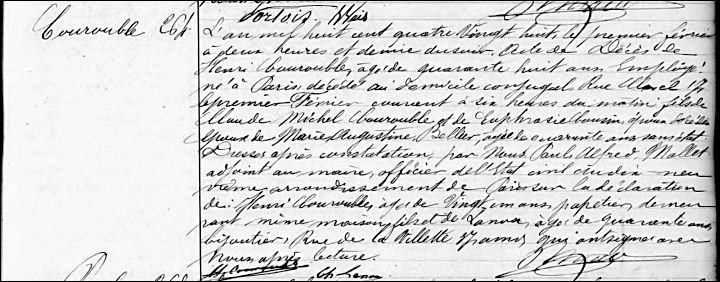 Courouble 264
L'an mil huit cent quatre vingt huit le premier février
à deux heures et demie du soir. Acte de Décès de
Henri Courouble, âgé de quarante huit ans Employé
né à Paris décédé au domicile conjugal Rue
le premier Février courant à six heures du matin fils de
Claude Michel Courouble et de Euphrasie Cousin, époux décédés
époux de Marie Augustine, Bellier, âgée de quarante ans sans état
Dressé après constatation, par Nous, Paul Alfred Mallet
adjoint au maire, officier de l'Etat civil du dix neu
vième arrondissement de Paris sur la déclaration
de: Henri Courouble, âgé de Vingt cinq ans, papetier, demeu
rant même maison, fils et de Lanoa, âgé de quarante ans
bijoutier, Rue de la Villette qui ont signé avec
Nous après lecture.